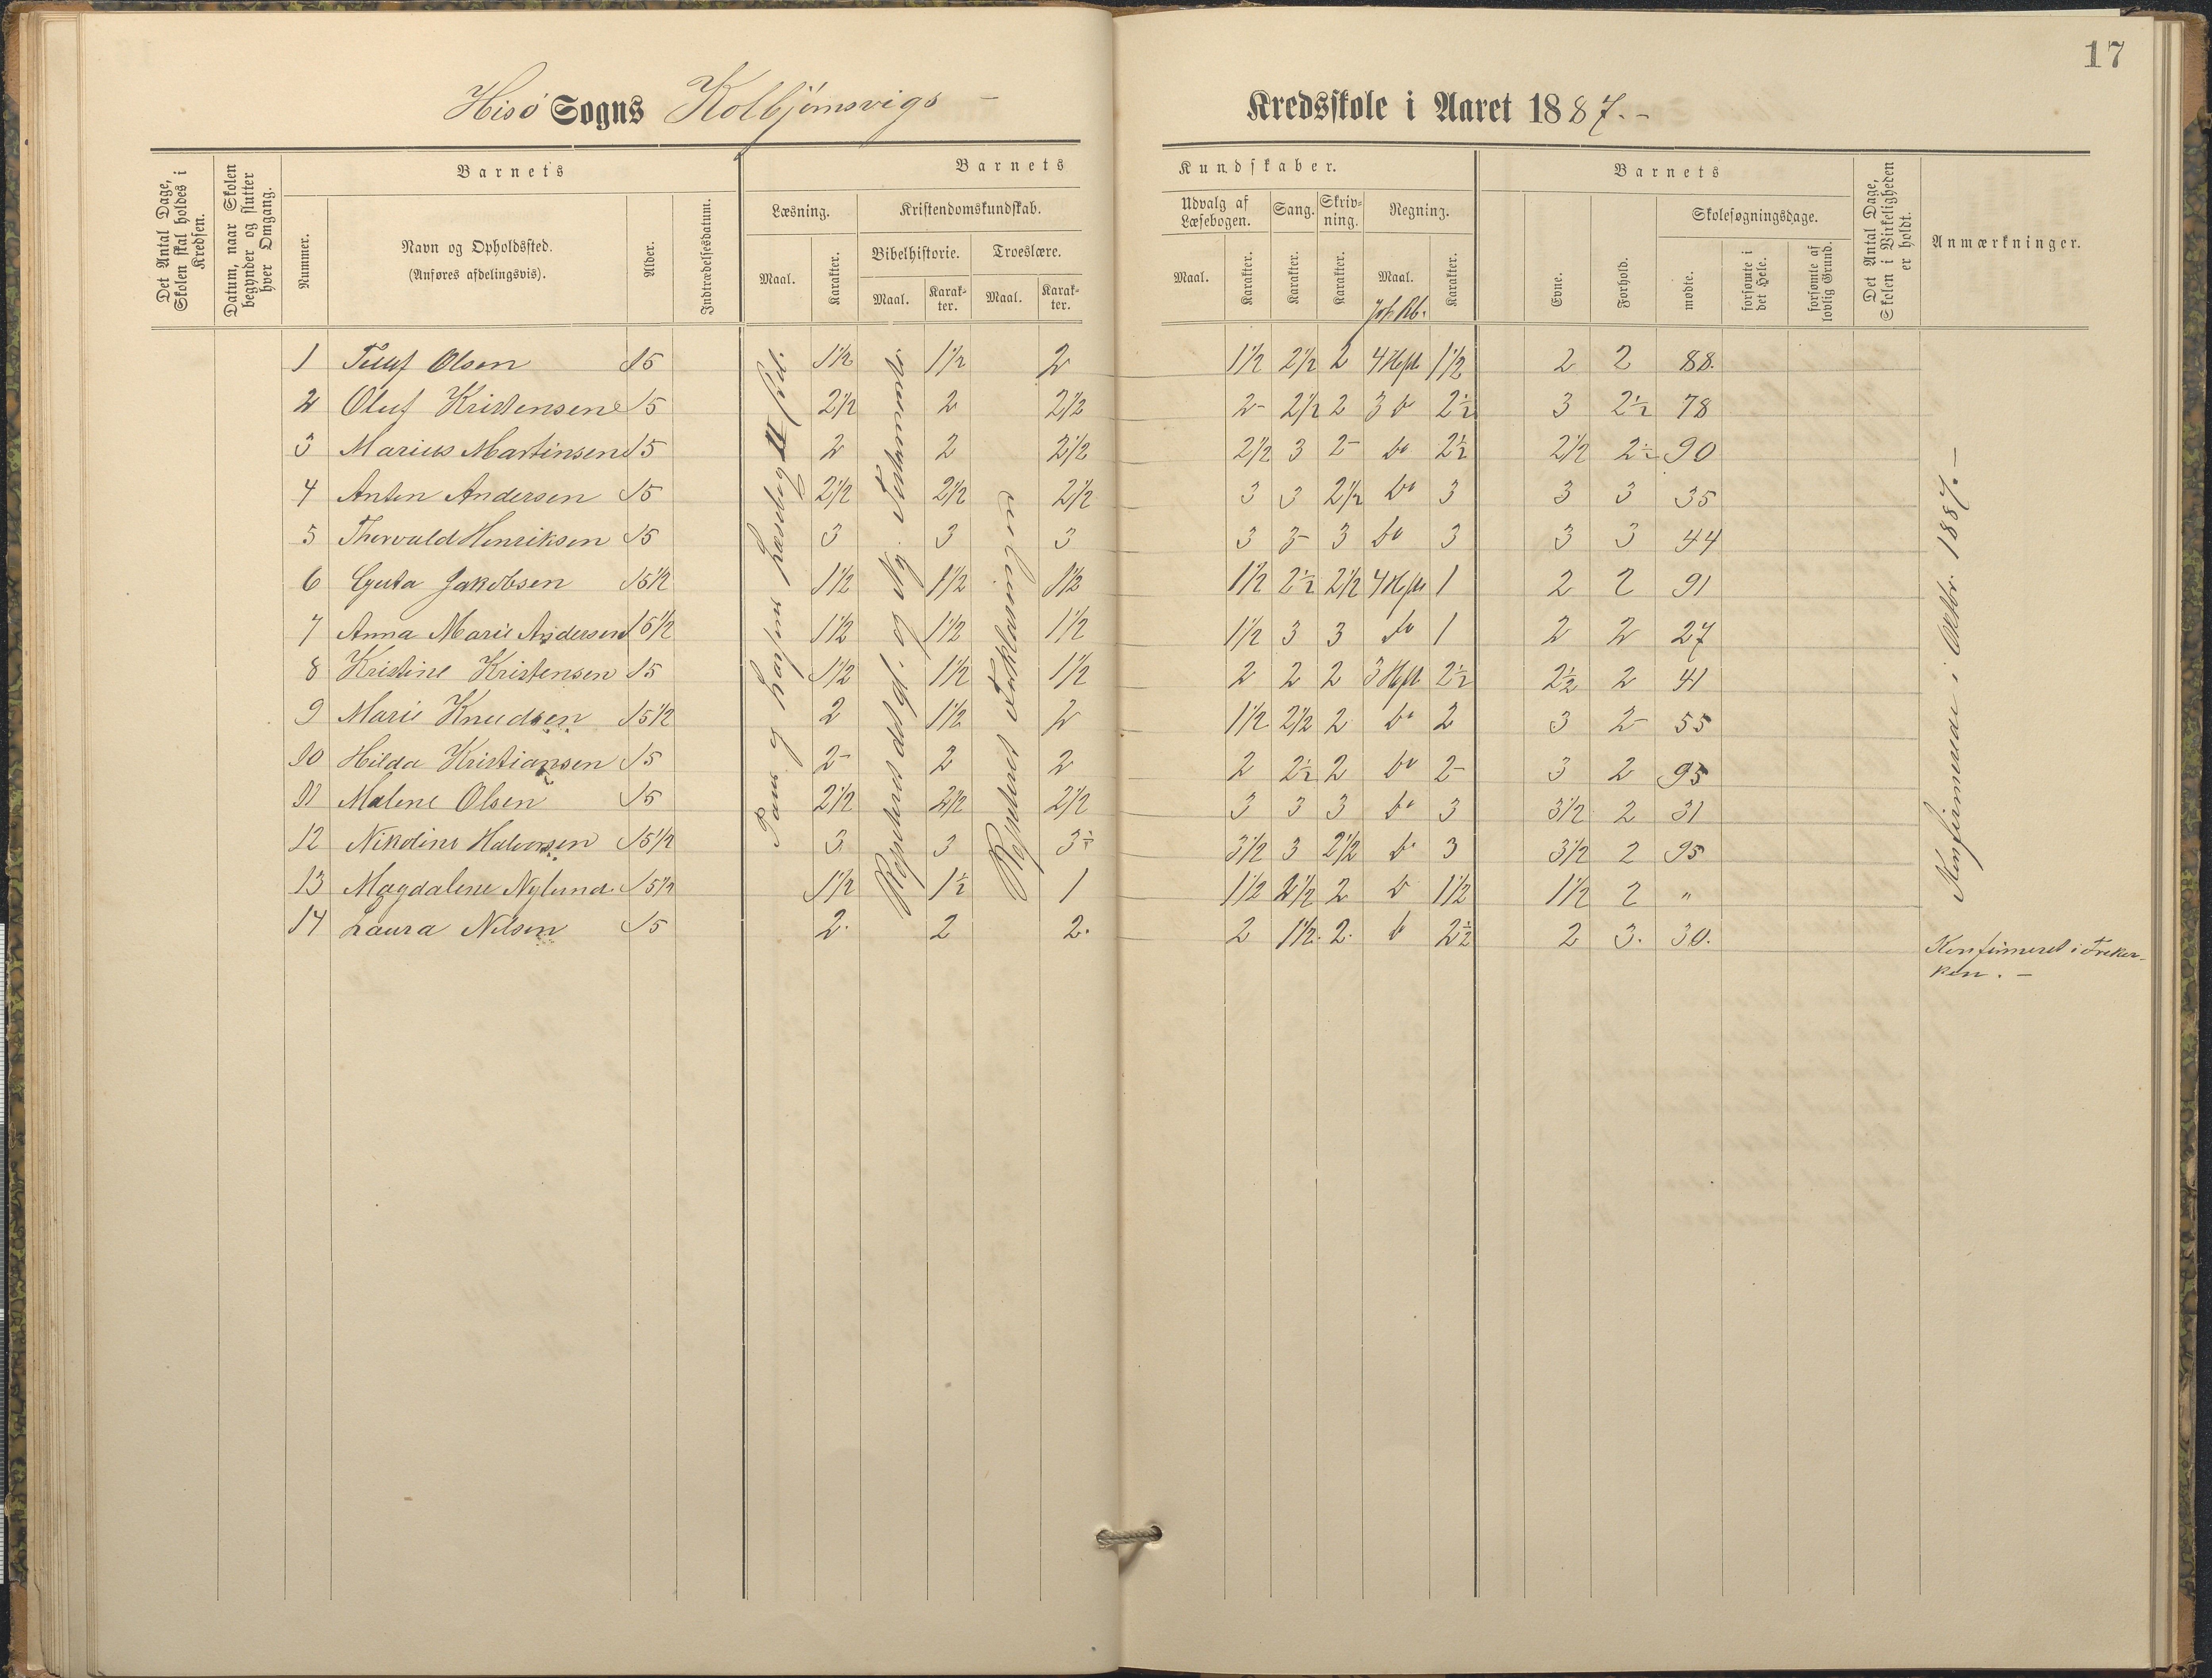 17
Hisö Sogns Kolbjörnsvigs - Kredsskole i Aaret 1887.-
Det Antal Dage, Skolen skal holdes i Kredsen.
Datum, naar Skolen begynder og slutter hver Omgang.
Barnets
Nummer.
Navn og Opholdssted.
(Anføres afdelingsvis).
Alder.
Indtrædelsesdatum.
Barnets Kundskaber.
Læsning.
Maal. Karakter.
Kristendomskundskab.
Bibelhistorie. Troeslære.
Maal. Karakter. Maal. Karakter.
Udvalg af Læsebogen. Sang. Skrivning. Regning.
Maal. Karakter. Karakter. Karakter. Maal. Karakter.
Barnets
Evne. Forhold.
Skolesøgningsdage.
mødte. forsømte i det Hele. forsømte af lovlig Grund.
Det Antal Dage, Skolen i Virkeligheden er holdt.
Anmærkninger.
1 Olsen 15 1½ 1½ 2 1½ 2½ 2 4 Heft 1½ 2 2 88.
2 Oluf Kristensen 15 2½ 2 2½ 2- 2½ 2 3 do 2½ 3 2½ 78
3 Marius Martinsen 15 2 2 2½ 2½ 3 2- do 2½ 2½ 2½ 90
4 Anton Andersen 15 2½ 2½ 2½ 3 3 2½ do 3 3 3 35
5 Thorvald Henriksen 15 3 3 3 3 3- 3 do 3 3 3 44
6 Jakobsen 15½ 1½ 1½ 1½ 1½ 2½ 2½ 4 Heft 1 2 2 91
7 Anna Marie Andersen 15½ 1½ 1½ 1½ 1½ 3 3 do 1 2 2 27
8 Kristine Kristensen 15 1½ 1½ 1½ 2 2 2 3 Heft 2½ 2½ 2 41
9 Marie Knudsen 15½ 2 1½ 2 1½ 2½ 2 do 2 3 2- 55
10 Hilda Kristiansen 15 2- 2 2 2 2½ 2 do 2- 3 2 95
11 Malene Olsen 15 2½ 2½ 2½ 3 3 3 do 3 3½ 2 31
12 Nikoline Halvorsen 15½ 3 3 3½ 3½ 3 2½ do 3 3½ 2 95
13 Magdalene Nylund 15½ 1½ 1½ 1 1½ 2½ 2 do 1½ 1½ 2 "
14 Laura Nilsen 15 2. 2 2. 2 1½. 2. do 2½ 2 3. 30.
Læsebog II
Repeteret det gl. og Ny. Testamente
Repeteret Forklaringen
Konfirmerede i Oktbr. 1887.-
Konfirmeret i Frekir-
ken. -